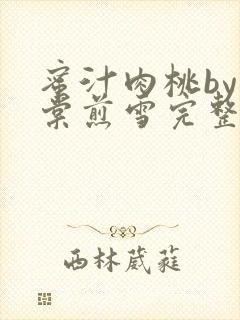 蜜汁肉桃by
棠煎雪完整
西林葳蕤